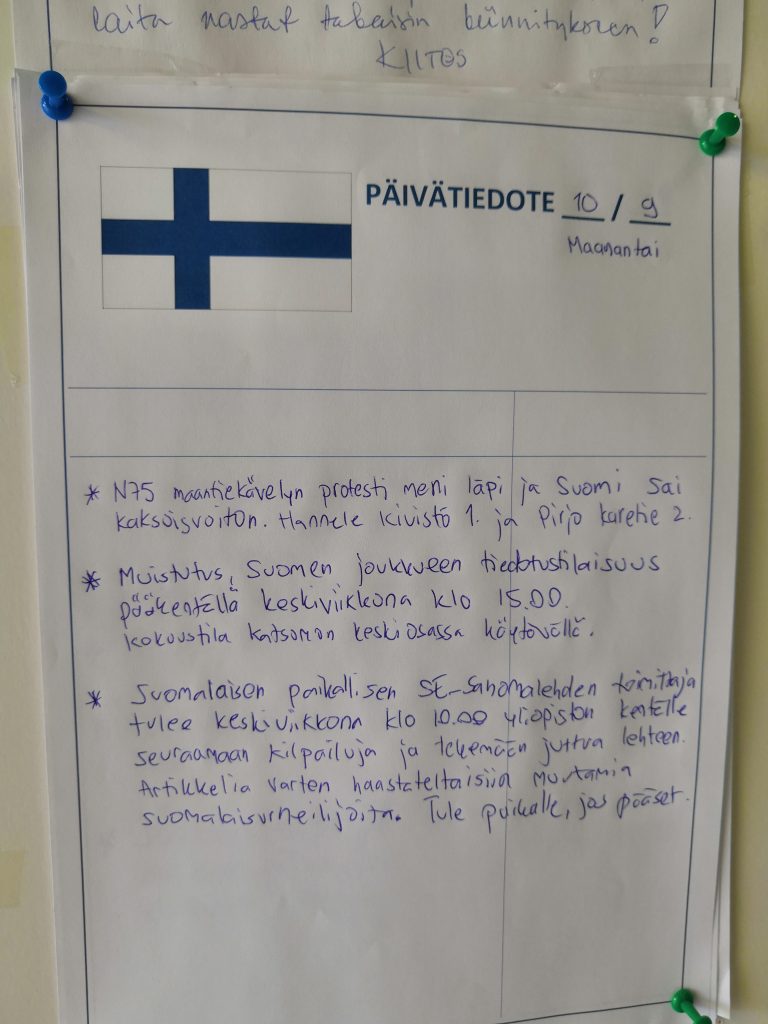 laita nastat takaisin kiinnitykseen!
KIITOS
PÄIVÄTIEDOTE 10 / 9
Maanantai
* N75 maantiekävelyn protesti meni läpi ja Suomi sai
kaksoisvoiton. Hannele Kivistö 1. ja Pirjo Karetie 2.
* Muistutus, Suomen joukkueen tiedotustilaisuus
pääkentällä keskiviikkona klo 15.00.
Kokoustila katsomon keskiosassa käytävällä.
* Suomalaisen paikallisen SE-Sanomalehden toimittaja
tulee keskiviikkona klo 10.00 yliopiston kentälle
seuraamaan kilpailuja ja tekemään juttua lehteen.
Artikkelia varten haastateltaisiin muutamia
suomalaisurheilijoita. Tule paikalle, jos pääset.